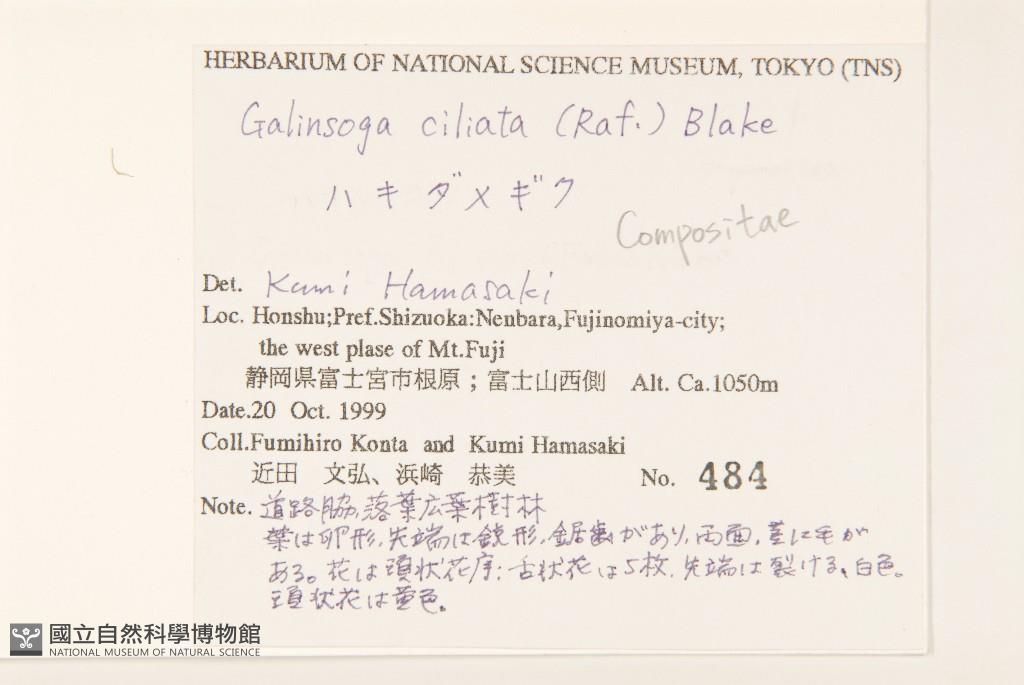 HERBARIUM OF NATIONAL SCIENCE MUSEUM, TOKYO (TNS)
Galinsoga ciliata (Raf.) Blake
ハキダメギク
Compositae
Det. Kumi Hamasaki
Loc. Honshu;Pref.Shizuoka:Nenbara,Fujinomiya-city;
the west plase of Mt.Fuji
静岡県富士宮市根原；富士山西側 Alt. Ca.1050m
Date.20 Oct. 1999
Coll.Fumihiro Konta and Kumi Hamasaki
近田 文弘、浜崎 恭美 No. 484
Note. 道路脇,落葉広葉樹林
葉は卵形,先端は鋭形,鋸歯があり,両面,茎に毛が
ある。花は頭状花序;舌状花は5枚,先端は裂ける、白色。
頭状花は黄色。
國立自然科學博物館
NATIONAL MUSEUM OF NATURAL SCIENCE